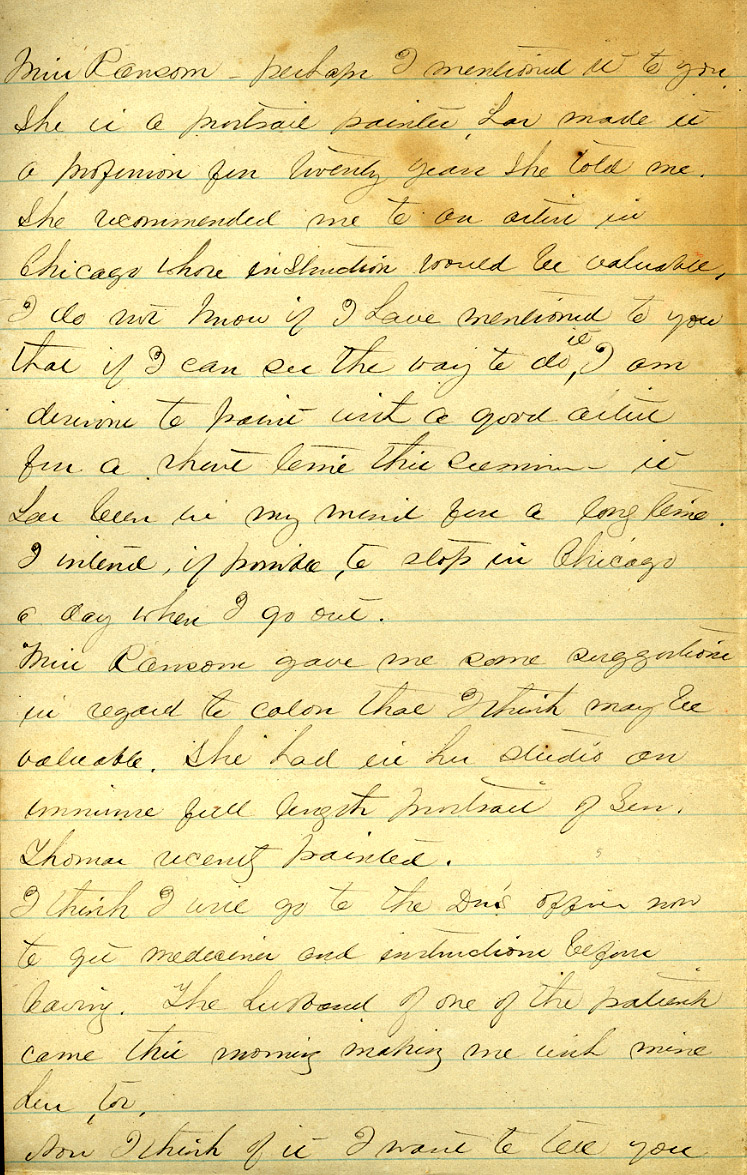 Miss Ransom - perhaps I mentioned it to you
She is a portrait painter, has made it
a profession for twenty years she told me.
She recommended me to an artist in
Chicago whose instruction would be valuable,
I do not know if I have mentioned to you
that if I can see the way to do it, I am
desirous to paint with a good artist
for a short time this summer - it
has been in my mind for a long time.
I intend, if possible, to stop in Chicago
a day when I go out.
Miss Ransom gave me some suggestions
in regard to color that I think may be
valuable. She had in her studio an
immense full length portrait of Gen.
Thomas recently painted.
I think I will go to the Dr's office now
to get medicines and instructions before
leaving. The husband of one of the patients
came this morning making me wish mine
here, too.
Now I think of it I want to tell you